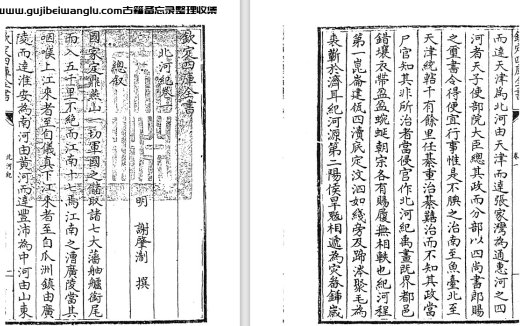 www.gujibeiwanglu.com古籍备忘录整理收集
欽定四庫全書
北河紀卷一
明 謝肇淛 撰
總叙
國家定鼎燕山一切軍國之儲取諸七大藩舳艫銜尾
而入五千里不絶而江南十七焉江南之漕廣陵當其
咽喉上江來者至自儀真下江來者至自瓜洲鎮由廣
陵而達淮安為南河由黄河而達豐沛為中河由山東
欽定四庫全書
北河紀
而達天津為北河由天津而達張家灣為通惠河之四
河者天子使部院大臣總其政而分部以四尚書郎賜
之璽書令得便宜行事惟是不腆之治南至魚臺北至
天津統轄千有餘里任綦重治綦囏治而不知其政當
尸官知其非所治者當侵官作北河紀禹畫既界都邑
錯壤衣帶盈盈蜿蜒朝宗各有賜履無相軼也紀河程
第一崑崙建瓴四瀆底定汶泗如綫旁及蹄涔聚毛為
裘斷於濟耳紀河源第二陽侯旱魃相遞為灾畚鍤歲